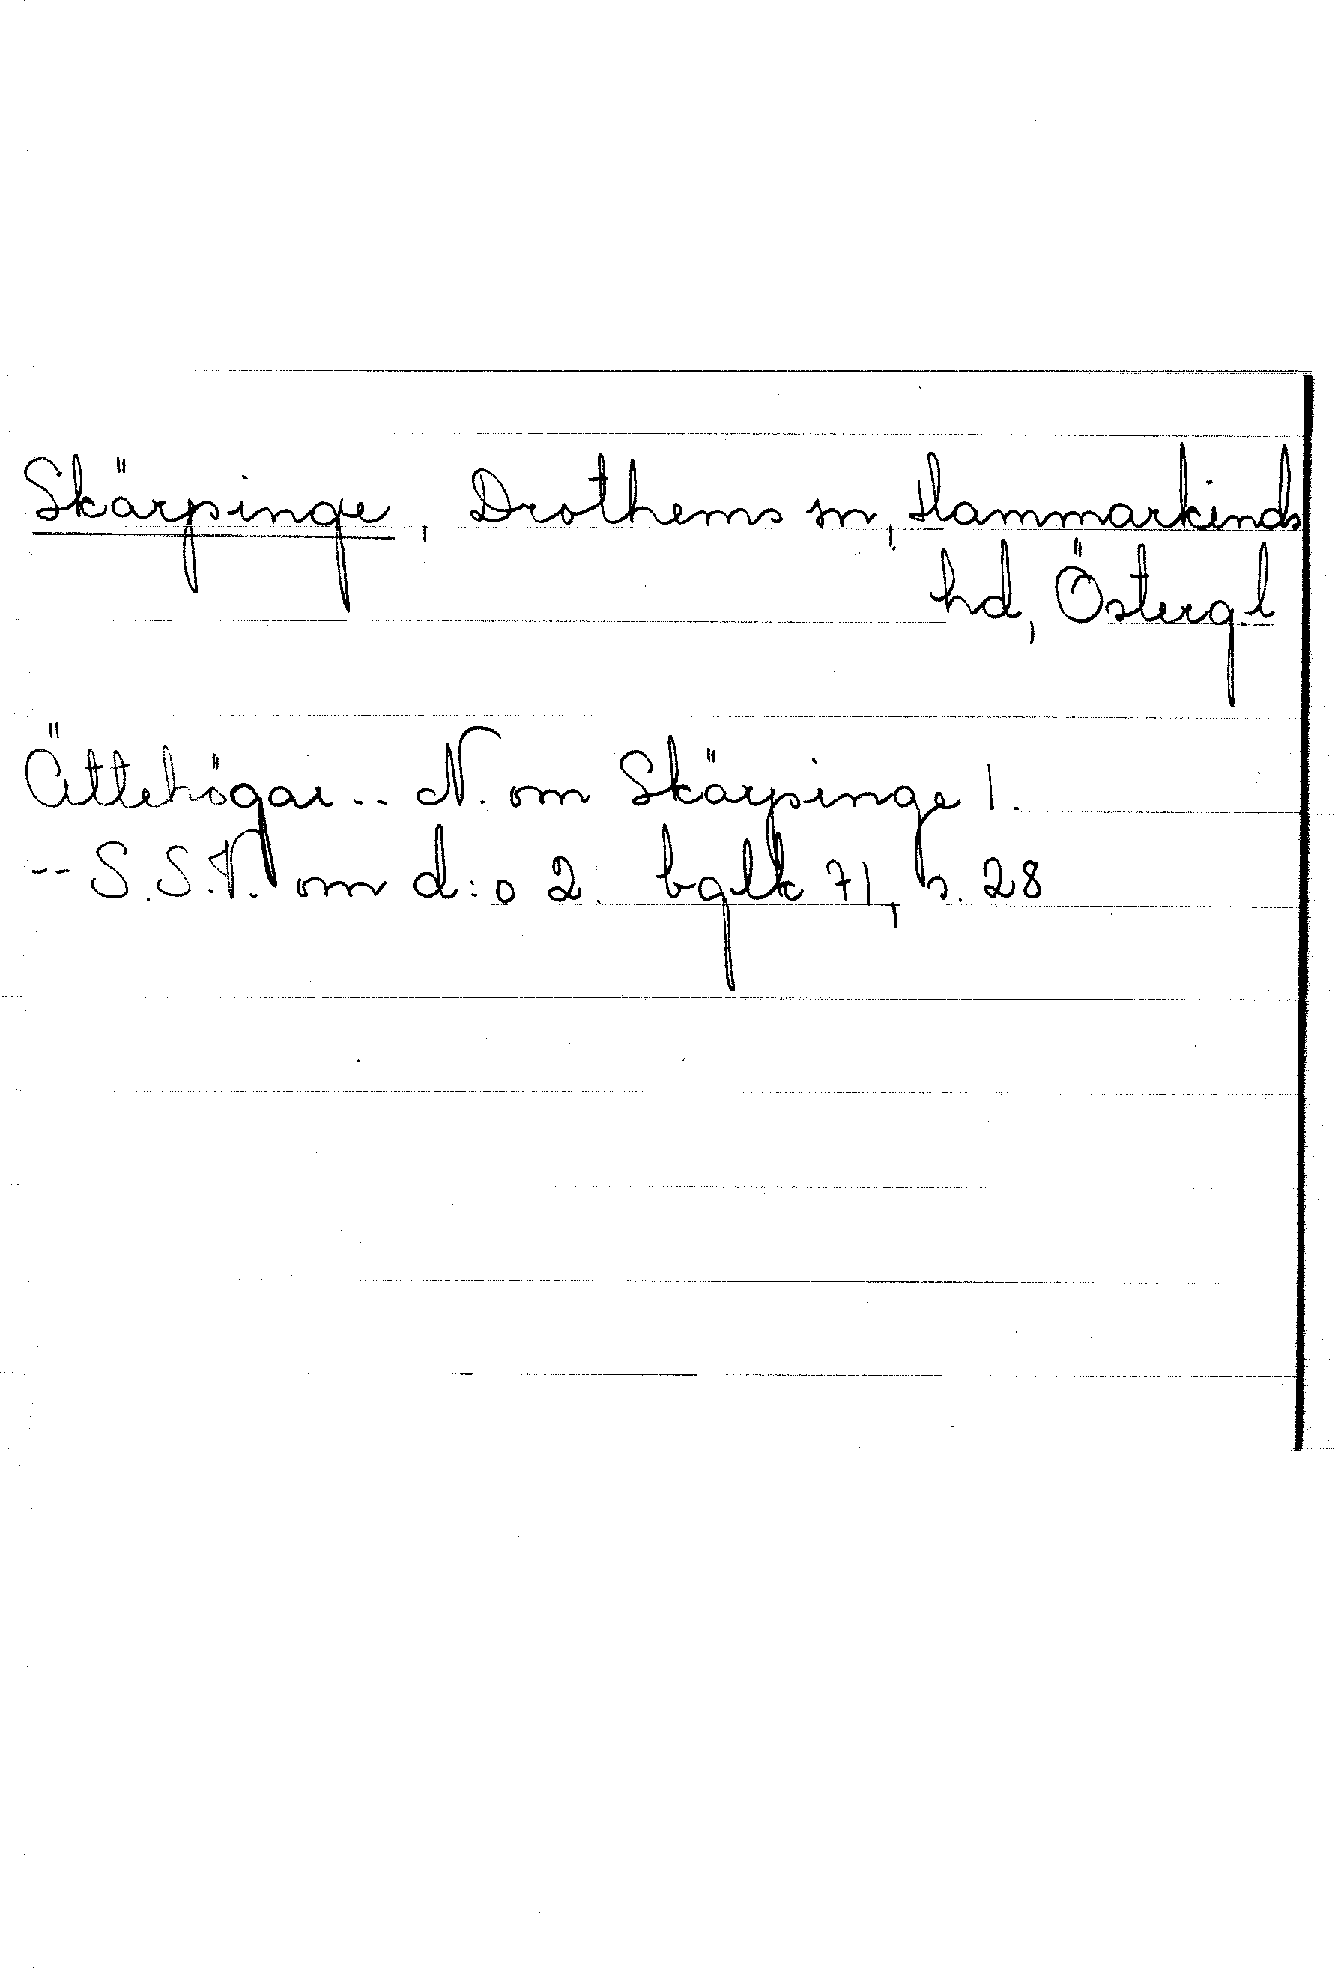 Skärpinge, Drothems sn, Hammarkinds
hd, Östergl
Ättehögar -- N. om Skärpinge 1.
-- S.S.V. om d:o 2. bglk 71, s. 28